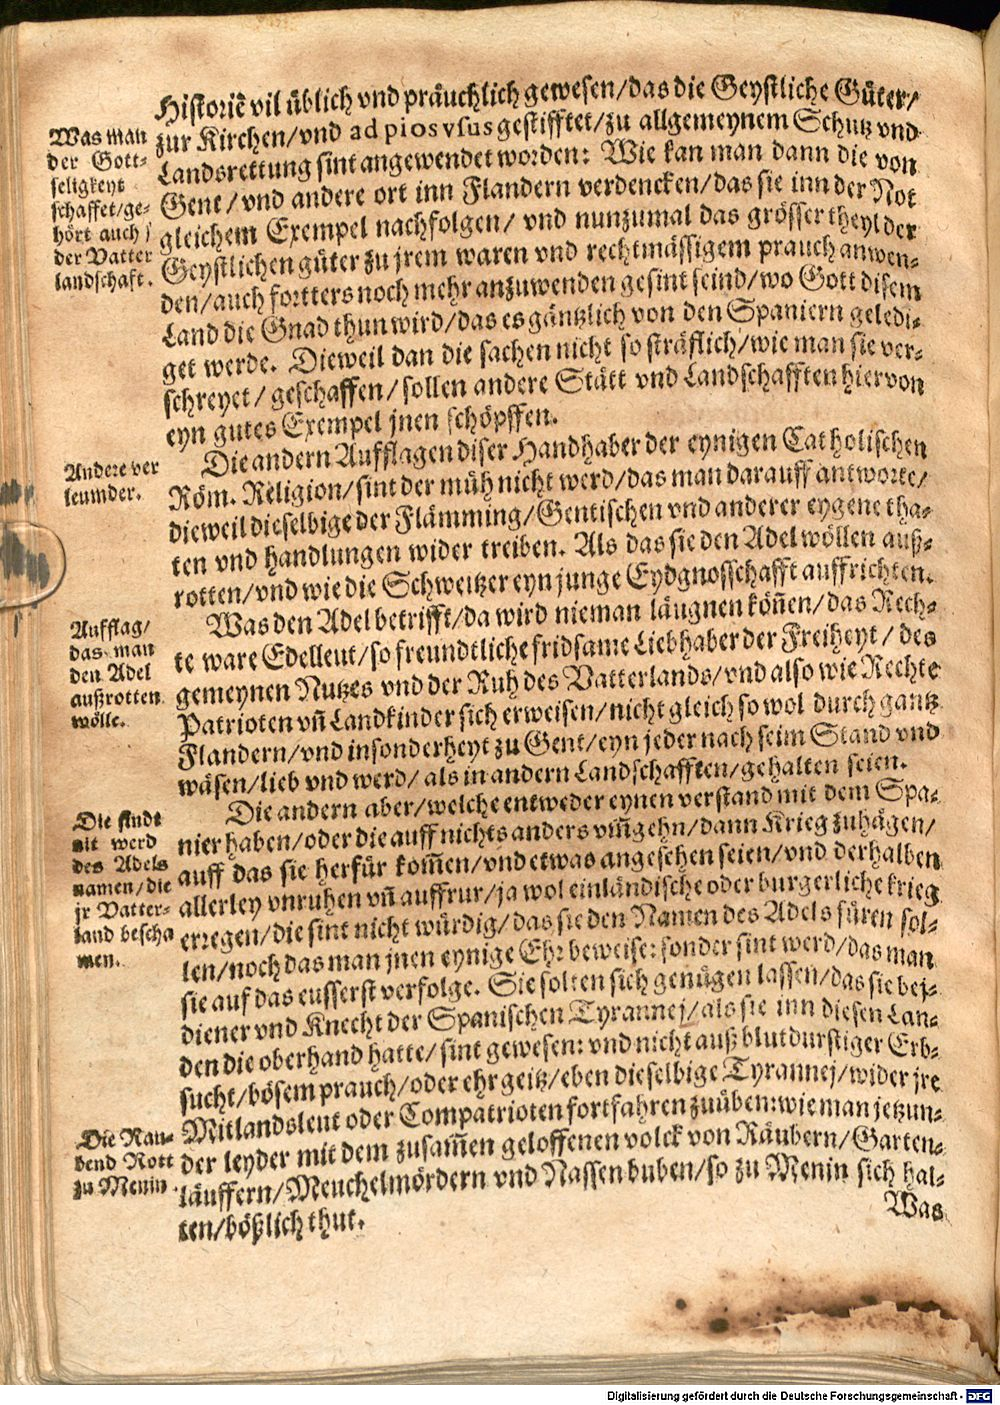 Historiē vil üblich vnd präuchlich gewesen/das die Geystliche Güter/
zur Kirchen/vnd ad pios vsus gestifftet/zu allgemeynem Schutz vnd
Landsrettung sint angewendet worden: Wie kan man dann die von
Gent/vnd andere ort inn Flandern verdencken/das sie inn der Not
gleichem Exempel nachfolgen/ vnd nunzumal das grösser theyl der
Geystlichen güter zu jrem waren vnd rechtmässigem prauch anwen-
den/auch fortters noch mehr anzuwenden gesint seind/wo Gott disem
Land die Gnad thun wird/das es gäntzlich von den Spaniern geledi-
get werde. Dieweil dan die sachen nicht so sträflich/wie man sie ver-
schreyet/geschaffen/sollen andere Stätt vnd Landschafften hiervon
eyn gutes Exempel jnen schöpffen.
Was man
der Gott-
seligkeyt
schaffet/ge-
hört auch
der Vatter
landschaft.
Die andern Aufflagen diser Handhaber der eynigen Catholischen
Röm. Religion/sint der müh nicht werd/das man darauff antworte/
dieweil dieselbige der Flämming/Gentischen vnd anderer eygene tha-
ten vnd handlungen wider treiben. Als das sie den Adel wöllen auß-
rotten/vnd wie die Schweitzer eyn junge Eydgnosschafft auffrichten.
Andere ver
leumder.
Was den Adel betrifft/da wird nieman läugnen köñen/das Rech-
te ware Edelleut/so freundtliche fridsame Liebhaber der Freiheyt/des
gemeynen Nutzes vnd der Ruh des Vatterlands/vnd also wie Rechte
Patrioten vñ Landkinder sich erweisen/nicht gleich so wol durch gantz
Flandern/vnd insonderheyt zu Gent/eyn jeder nach seim Stand vnd
wäsen/lieb vnd werd/als in andern Landschafften/gehalten seien.
Aufflag/
das man
den Adel
außrotten
wölle.
Die andern aber/welche entweder eynen verstand mit dem Spa-
nier haben/oder die auff nichts anders vm̃gehn/dann Krieg zuhägen/
auff das sie herfür kom̃en/vnd etwas angesehen seien/vnd derhalben
allerley vnruhen vñ auffrur/ja wol einländische oder burgerliche krieg
erregen/die sint nicht würdig/das sie den Namen des Adels füren sol-
len/noch das man jnen eynige Ehr beweise: sonder sint werd/das man
sie auf das eusserst verfolge. Sie solten sich genügen lassen/das sie bej-
diener vnd Knecht der Spanischen Tyrannej/als sie inn diesen Lan-
den die oberhand hatte/sint gewesen: vnd nicht auß blutdurstiger Erb-
sucht/bösem prauch/oder ehrgeitz/eben dieselbige Tyrannej/wider jre
Mitlandsleut oder Compatrioten fortfahren zuüben: wie man jetzun-
der leyder mit dem zusam̃en geloffenen volck von Räubern/Garten-
läuffern/Meuchelmördern vnd Nassen buben/so zu Menin sich hal-
ten/bößlich thut.
Die sindt
nit werd
des Adels
namen/die
jr Vatter-
land bescha
men.
Die Rau-
bend Rott
zu Menin.
Was
Digitalisierung gefördert durch die Deutsche Forschungsgemeinschaft - DFG